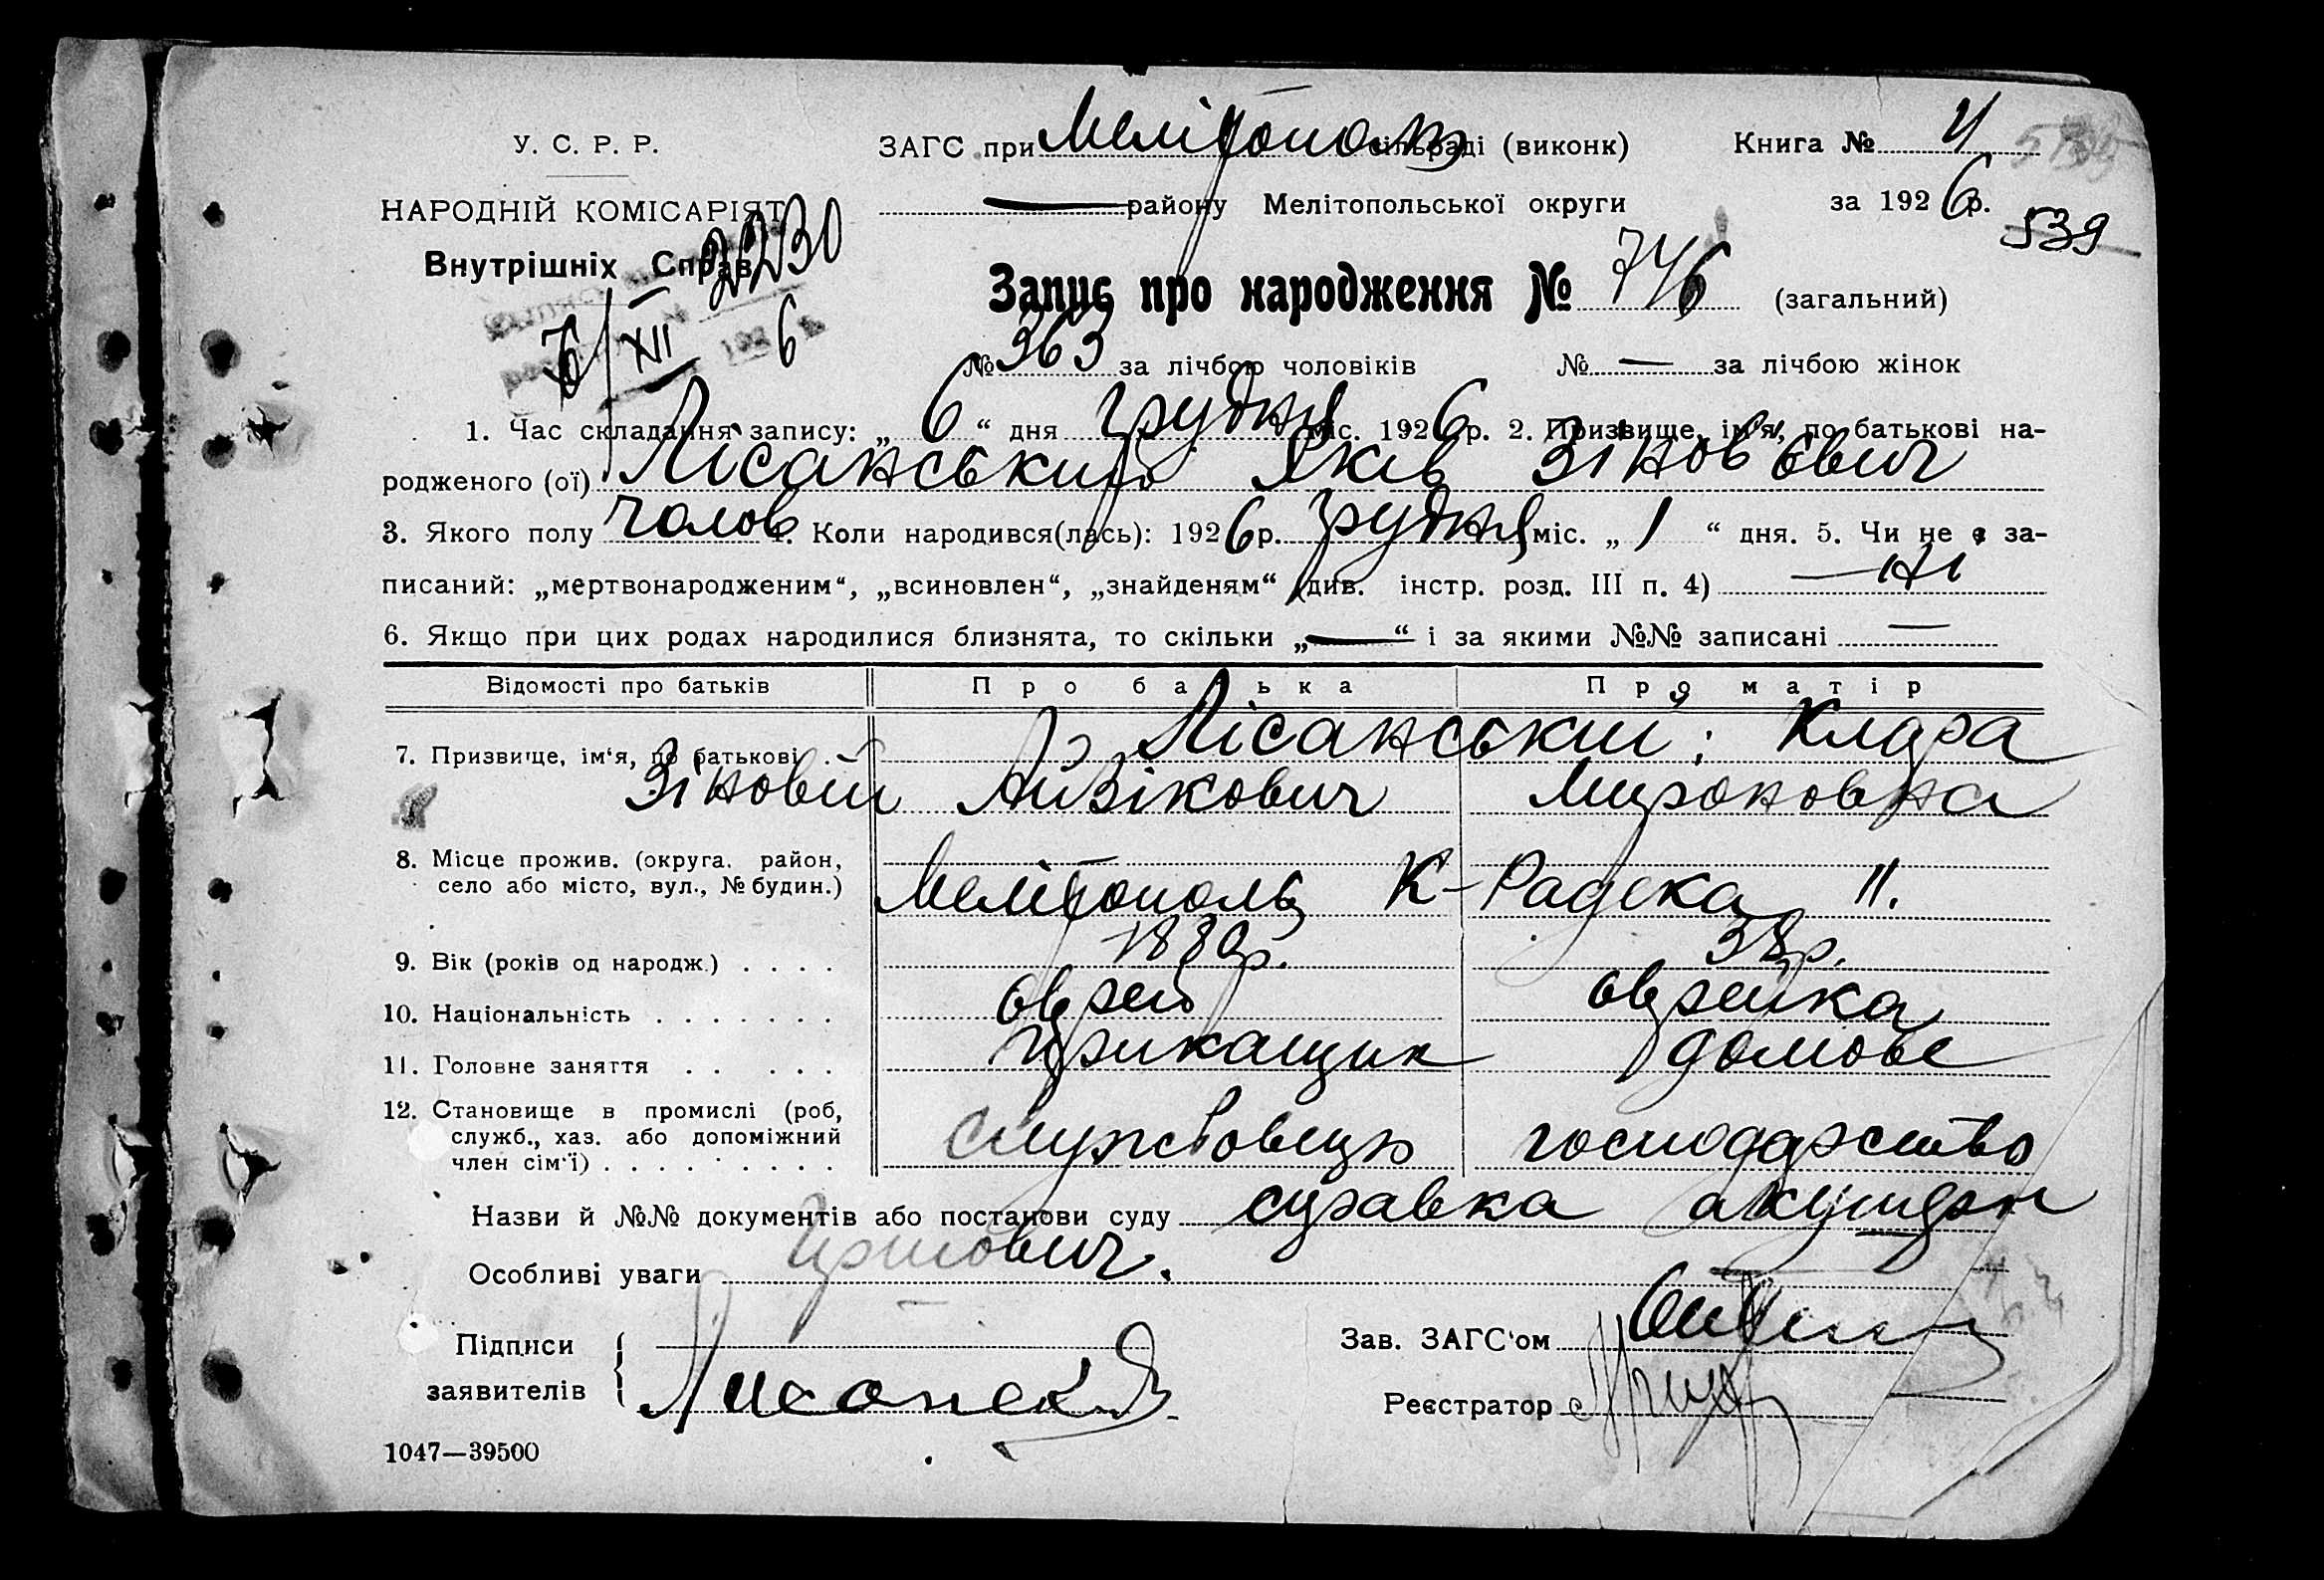 У. С. Р. Р.
НАРОДНІЙ КОМІСАРІЯТ
Внутрішніх Справ
2230
6/XII 192 6
ЗАГС при Мелітополь сільраді (виконк)
— району Мелітопольської округи
Книга №
за 192 6 р.
539
Запис про народження № 746 (загальний)
№ 363 за лічбою чоловіків № — за лічбою жінок
1. Час складання запису: „ 6 “ дня грудня міс. 192 6 р. 2. Призвище, ім'я, по батькові на-
родженого (ої) Лісанський Яків Зінов'євич
3. Якого полу чолов 4. Коли народився(лась): 192 6 р. грудня міс. „ 1 “ дня. 5. Чи не є за-
писаний: „мертвонародженим“, „всиновлен“, „знайденям“ (див. інстр. розд. III п. 4) — ні
6. Якщо при цих родах народилися близнята, то скільки „ — “ і за якими №№ записані —
Відомості про батьків Про батька Про матір
Лісанський; Клара
7. Призвище, ім‘я, по батькові
Зіновій Айзікович Мироновна
8. Місце прожив. (округа, район,
село або місто, вул., № будин.) Мелітополь К-Радека 11.
9. Вік (років од народж.) . . . . 1889р. 38р.
10. Національність . . . . . . . єврей єврейка
11. Головне заняття . . . . . прикащик домове
12. Становище в промислі (роб,
служб., хаз. або допоміжний
член сім‘ї) . . . . . . . . . службовець господарство
Назви й №№ документів або постанови суду справка акушерк
Особливі уваги
Підписи
заявителів Лисанский
Зав. ЗАГС‘ом
Реєстратор
1047—39500